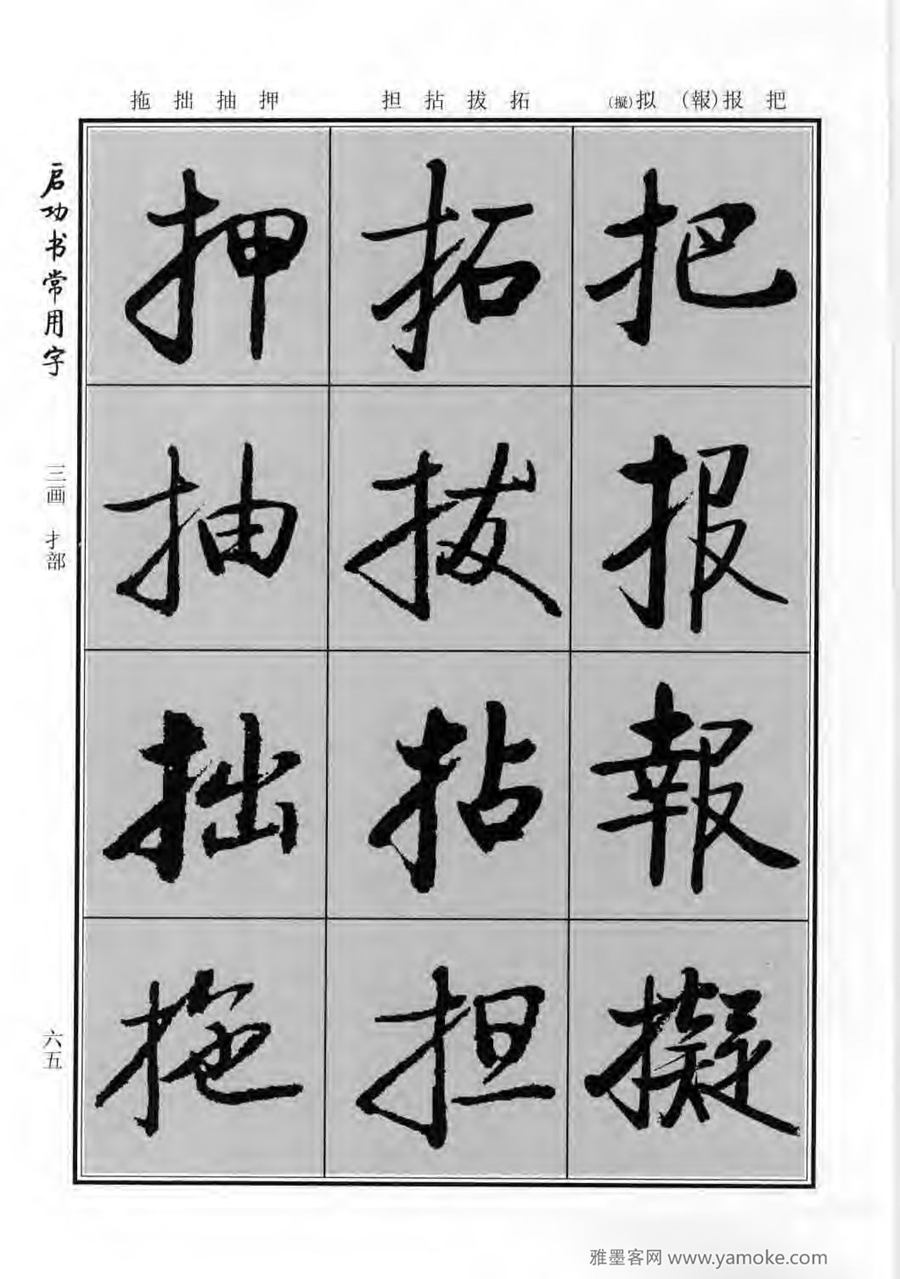 把 报(報) 拟(擬)
拓 拔 拈 担
押 抽 拙 拖
把报報擬
拓拔拈担
押抽拙拖
启功书常用字
三画 扌部
六五
雅墨客网 www.yamoke.com